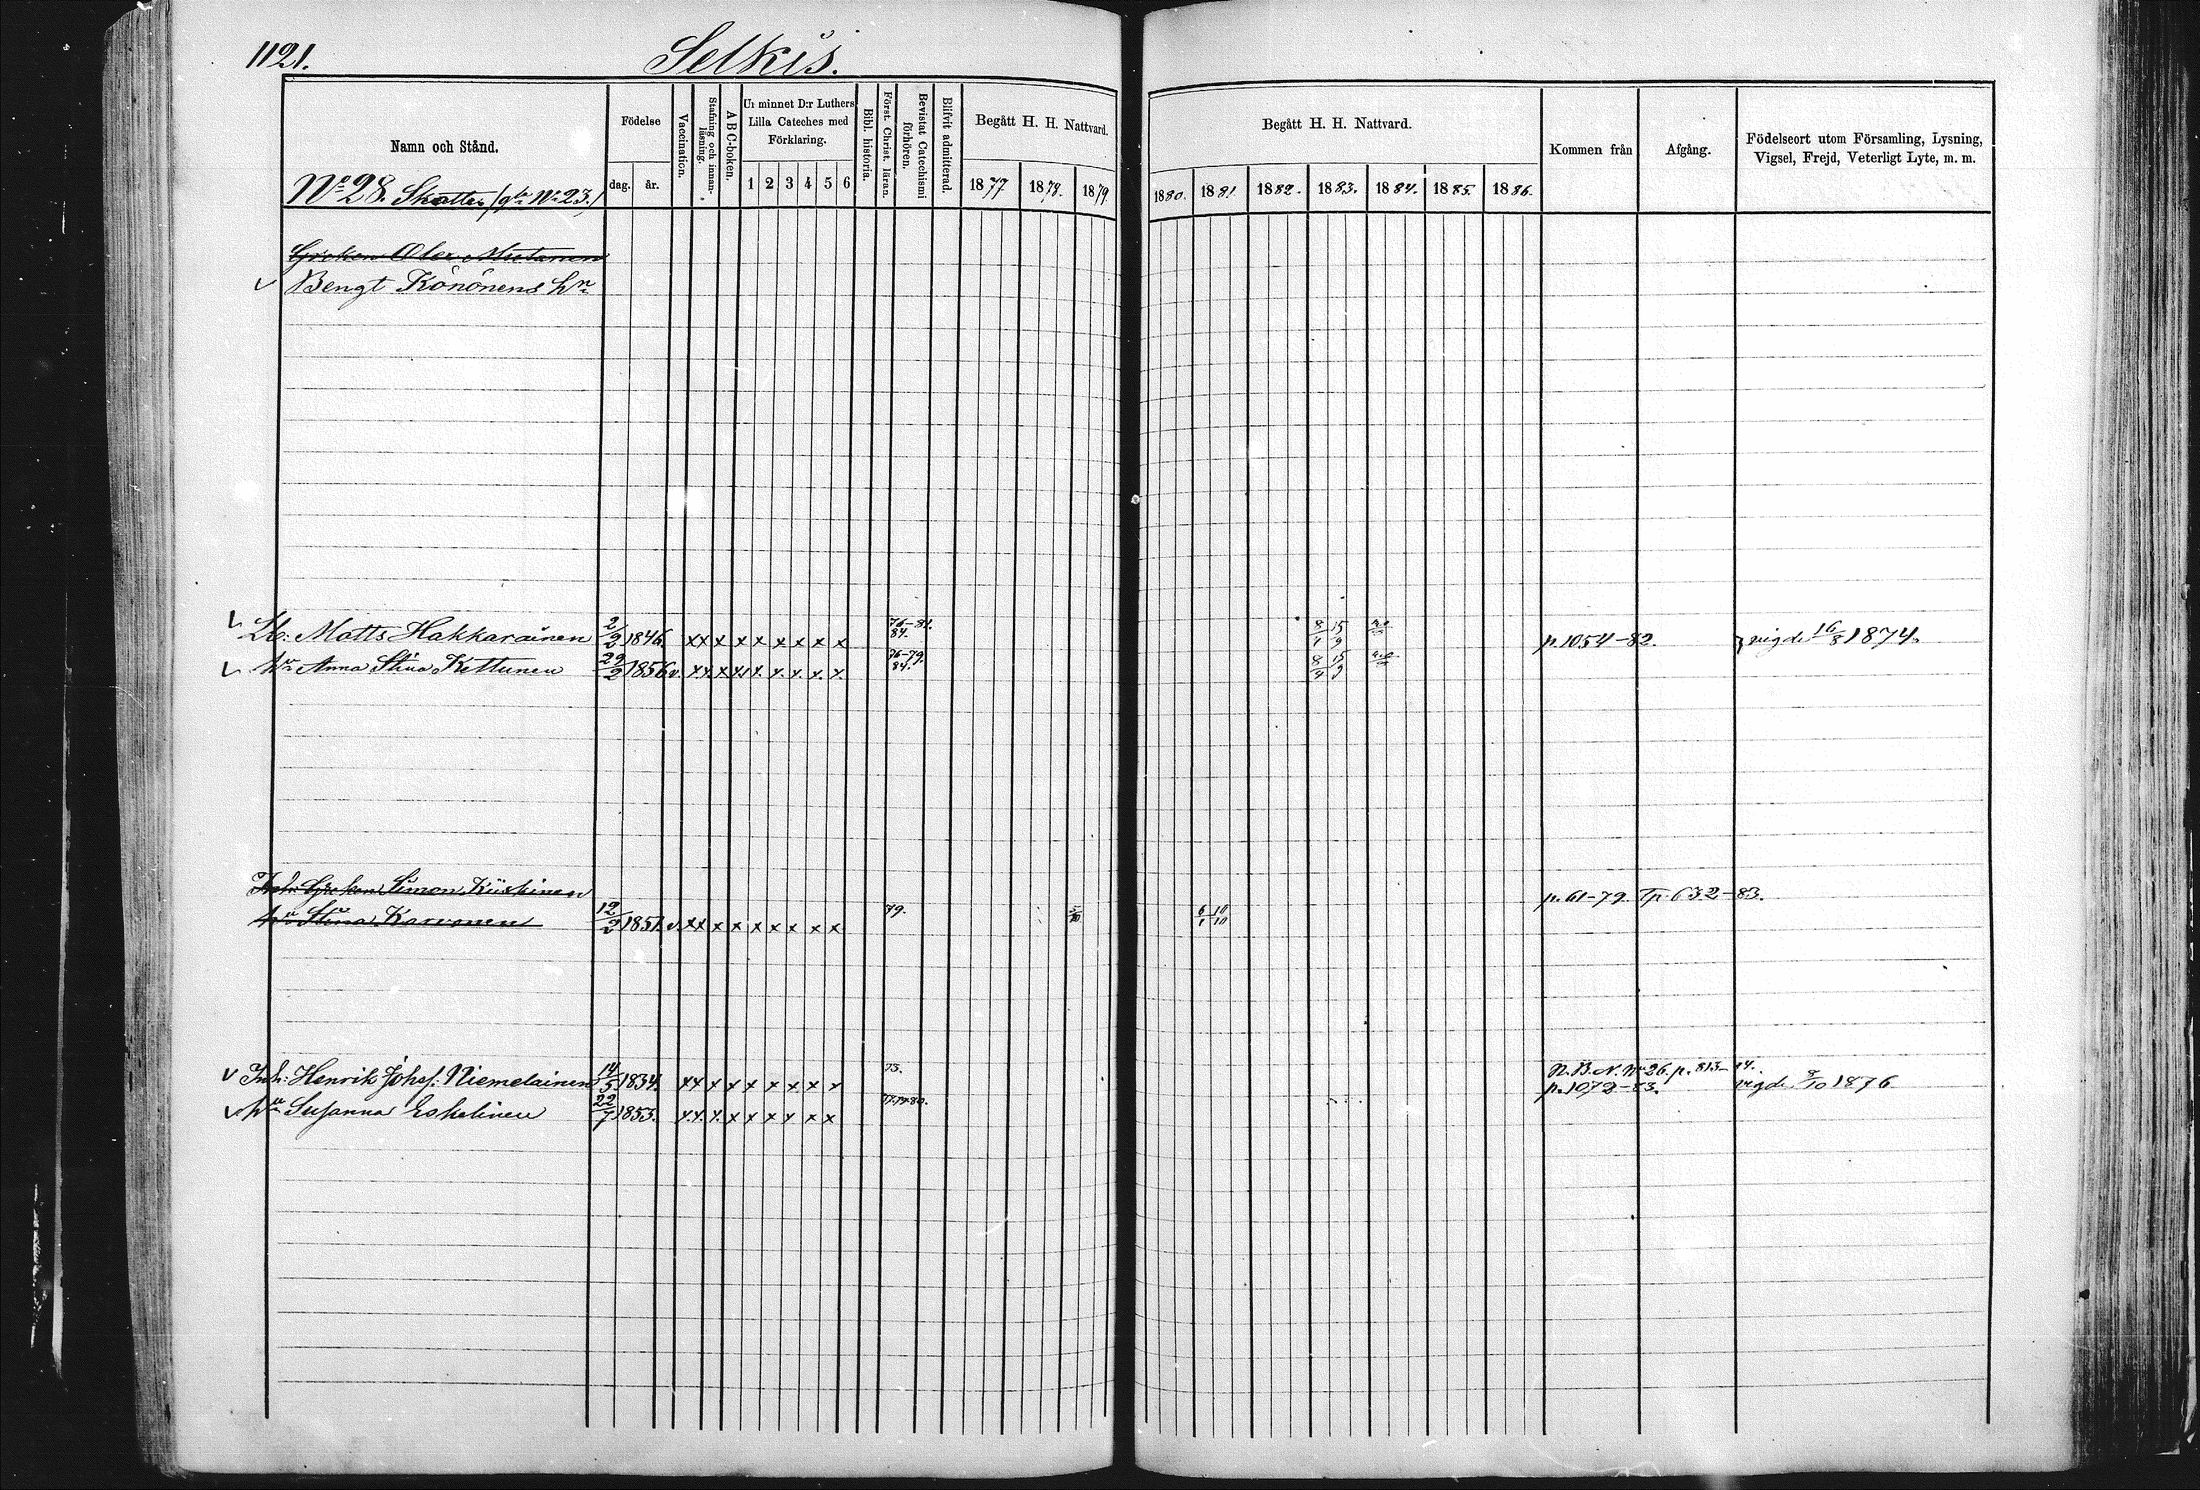 1121.
Selkis.
Namn och Stånd.
Födelse
dag.
år.
Vaccination.
Stafning och innanläsning.
ABC-boken.
Ur minnet D:r Luthers Lilla Cateches med Förklaring.
1 2 3 4 5 6
Bibl. historia.
Först. Christ. läran.
Bevistat Catechismi förhören.
Blifvit admitterad.
Begått H. H. Nattvard.
1877 1878. 1879.
Begått H. H. Nattvard.
1880. 1881. 1882. 1883. 1884. 1885. 1886.
Kommen från
Afgång.
Födelseort utom Församling, Lysning,
Vigsel, Frejd, Veterligt Lyte, m. m.
No 28. Skatte (gla No 23.)
Greken Olex Mutanen
Bengt Könönens hn
Lb: Matts Hakkarainen 2/2 1846. x x x x x x x x x 76-81. 84. 8/4 15/9 p. 1054-82. vigde 16/8 1874.
hu Anna Stina Kettunen 29/2 1856 v. x x x x x x x x x 76-79. 84. 8/4 15/9
Inh: Greken Simon Kiiskinen p. 61-79. Tp. 632-83.
hu Stina Karvonen 12/2 1851. v. x x x x x x x x x 79. 5/10 6/1 10/10
Inh: Henrik Johs: Niemelainen 14/5 1834. x x x x x x x x x 73. N.B. N. No 26. p. 813-14.
p. 1072-83. vigde 8/10 1876
hu Susanna Eskelinen 22/7 1853. x x x x x x x x x 77.79.80.